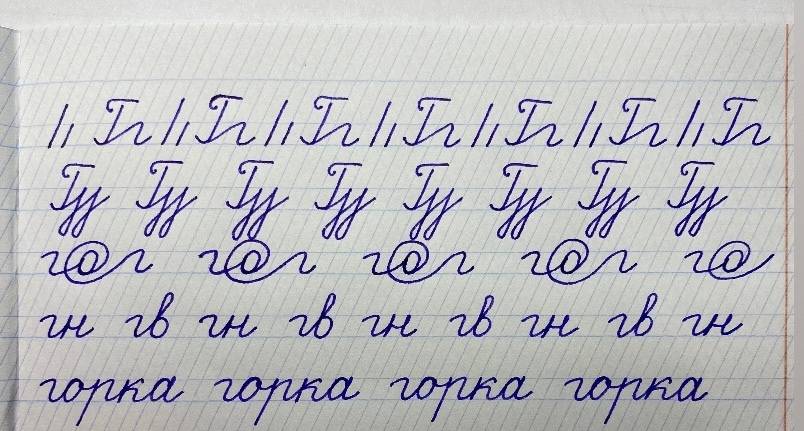 // Гг // Гг // Гг // Гг // Гг // Гг // Гг
Гу Гу Гу Гу Гу Гу Гу Гу
г@г г@г г@г г@г г@
гн гв гн гв гн гв гн гв гн
горка горка горка горка